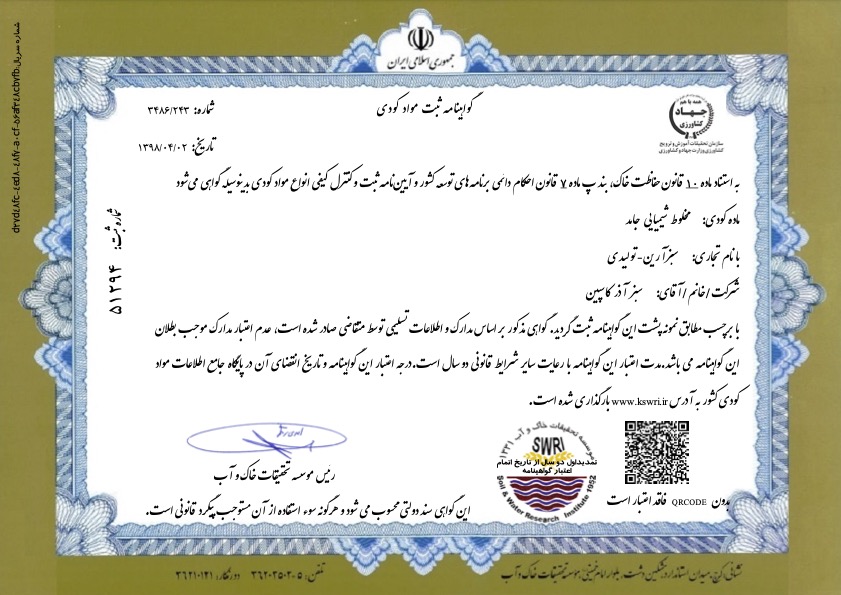 جمهوری اسلامی ایران
همه با هم
جهاد
کشاورزی
سازمان تحقیقات آموزش و ترویج
کشاورزی وزارت جهاد کشاورزی
گواهینامه ثبت مواد کودی
شماره: ۳۴۸۶/۲۴۳
تاریخ: ۱۳۹۸/۰۴/۰۲
به استناد ماده ۱۰ قانون حفاظت خاک، بند پ ماده ۷ قانون احکام دائمی برنامه های توسعه کشور و آیین‌نامه ثبت و کنترل کیفی انواع مواد کودی بدینوسیله گواهی می‌شود
ماده کودی: مخلوط شیمیایی جامد
با نام تجاری: سبزآرین-تولیدی
شرکت/خانم/آقای: سبز آذر کاسپین
با برچسب مطابق نمونه پشت این گواهینامه ثبت گردید. گواهی مذکور بر اساس مدارک و اطلاعات تسلیمی توسط متقاضی صادر شده است، عدم اعتبار مدارک موجب بطلان
این گواهینامه می باشد.مدت اعتبار این گواهینامه با رعایت سایر شرایط قانونی دو سال است.درجه اعتبار این گواهینامه و تاریخ انقضای آن در پایگاه جامع اطلاعات مواد
کودی کشور به آدرس www.kswri.ir بارگذاری شده است.
شماره ثبت: ۵۱۲۹۴
موسسه تحقیقات خاک و آب ۱۳۳۱
SWRI
تمدیداول دو سال از تاریخ اتمام
اعتبار گواهینامه
Soil & Water Research Institute 1952
رئیس موسسه تحقیقات خاک و آب
بدون QRCODE فاقد اعتبار است
این گواهی سند دولتی محسوب می شود و هرگونه سوء استفاده از آن مستوجب پیگرد قانونی است.
نشانی: کرج، میدان استاندارد، مشکین دشت، بلوار امام خمینی، موسسه تحقیقات خاک و آب
تلفن: ۳۶۲۰۳۵۰۲-۵ دورنگار: ۳۶۲۱۰۱۲۱